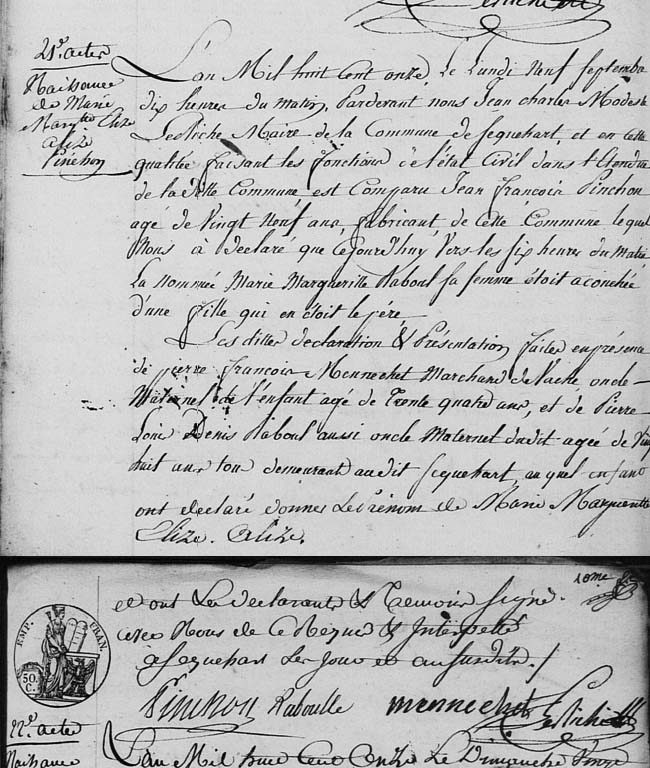 21e. acte
Naissance
de Marie
Margte Elize
alize
Pinchon
L'an Mil huit Cent onze, Le Lundi Neuf Septembre
dix heures du matin, Pardevant nous Jean Charles Modeste
Lestiché Maire de la Commune de Sequehart, et en cette
qualitée faisant les fonctions de l'état Civil dans l'étendue
de la ditte Commune, est Comparu Jean françois Pinchon
agé de Vingt Neuf ans, fabricant de Cette Commune lequel
Nous à déclaré que Cejourd'huy Vers les Six heures du Matin
La nommée Marie Margueritte Raboul sa femme étoit acouchée
d'une fille qui en étoit le père
Les dittes déclaration & Présentation faites en présence
de pierre françois Mennechet Marchand de Vache oncle
Maternel de l'enfant agé de Trente quatre ans, et de Pierre
Louis Denis Raboul aussi oncle Maternel dudit agée de Vingt
huit ans tou demeurant audit Sequehart, auquel enfant
ont declaré donner Le Prénom de Marie Margueritte
Elize. alize.
10me
et ont Les declarants & Temoins Signé
avec Nous de Ce Requis & Interpellé
à Sequehart Les Jour et an Susdits./
EMP. FRAN.
50 C.
Pinchon Raboulle mennechet Lestiché
22e. acte
Naissance
L'an Mil huit Cent Onze Le Dimanche